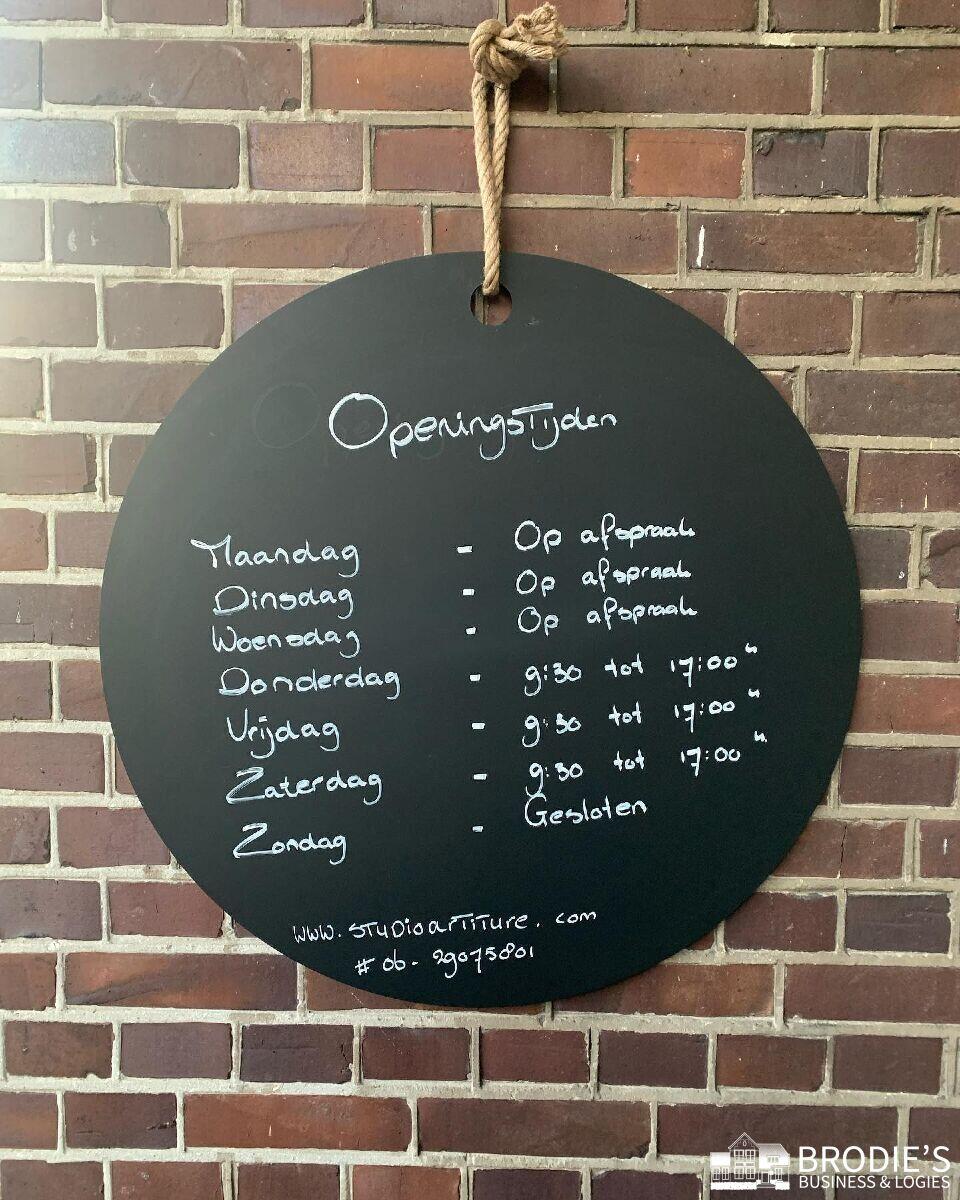 Openingstijden
Maandag - Op afspraak
Dinsdag - Op afspraak
Woensdag - Op afspraak
Donderdag - 9:30 tot 17:00 u
Vrijdag - 9:30 tot 17:00 u
Zaterdag - 9:30 tot 17:00 u
Zondag - Gesloten
www.studioartiture.com
# 06-29075801
BRODIE'S
BUSINESS & LOGIES